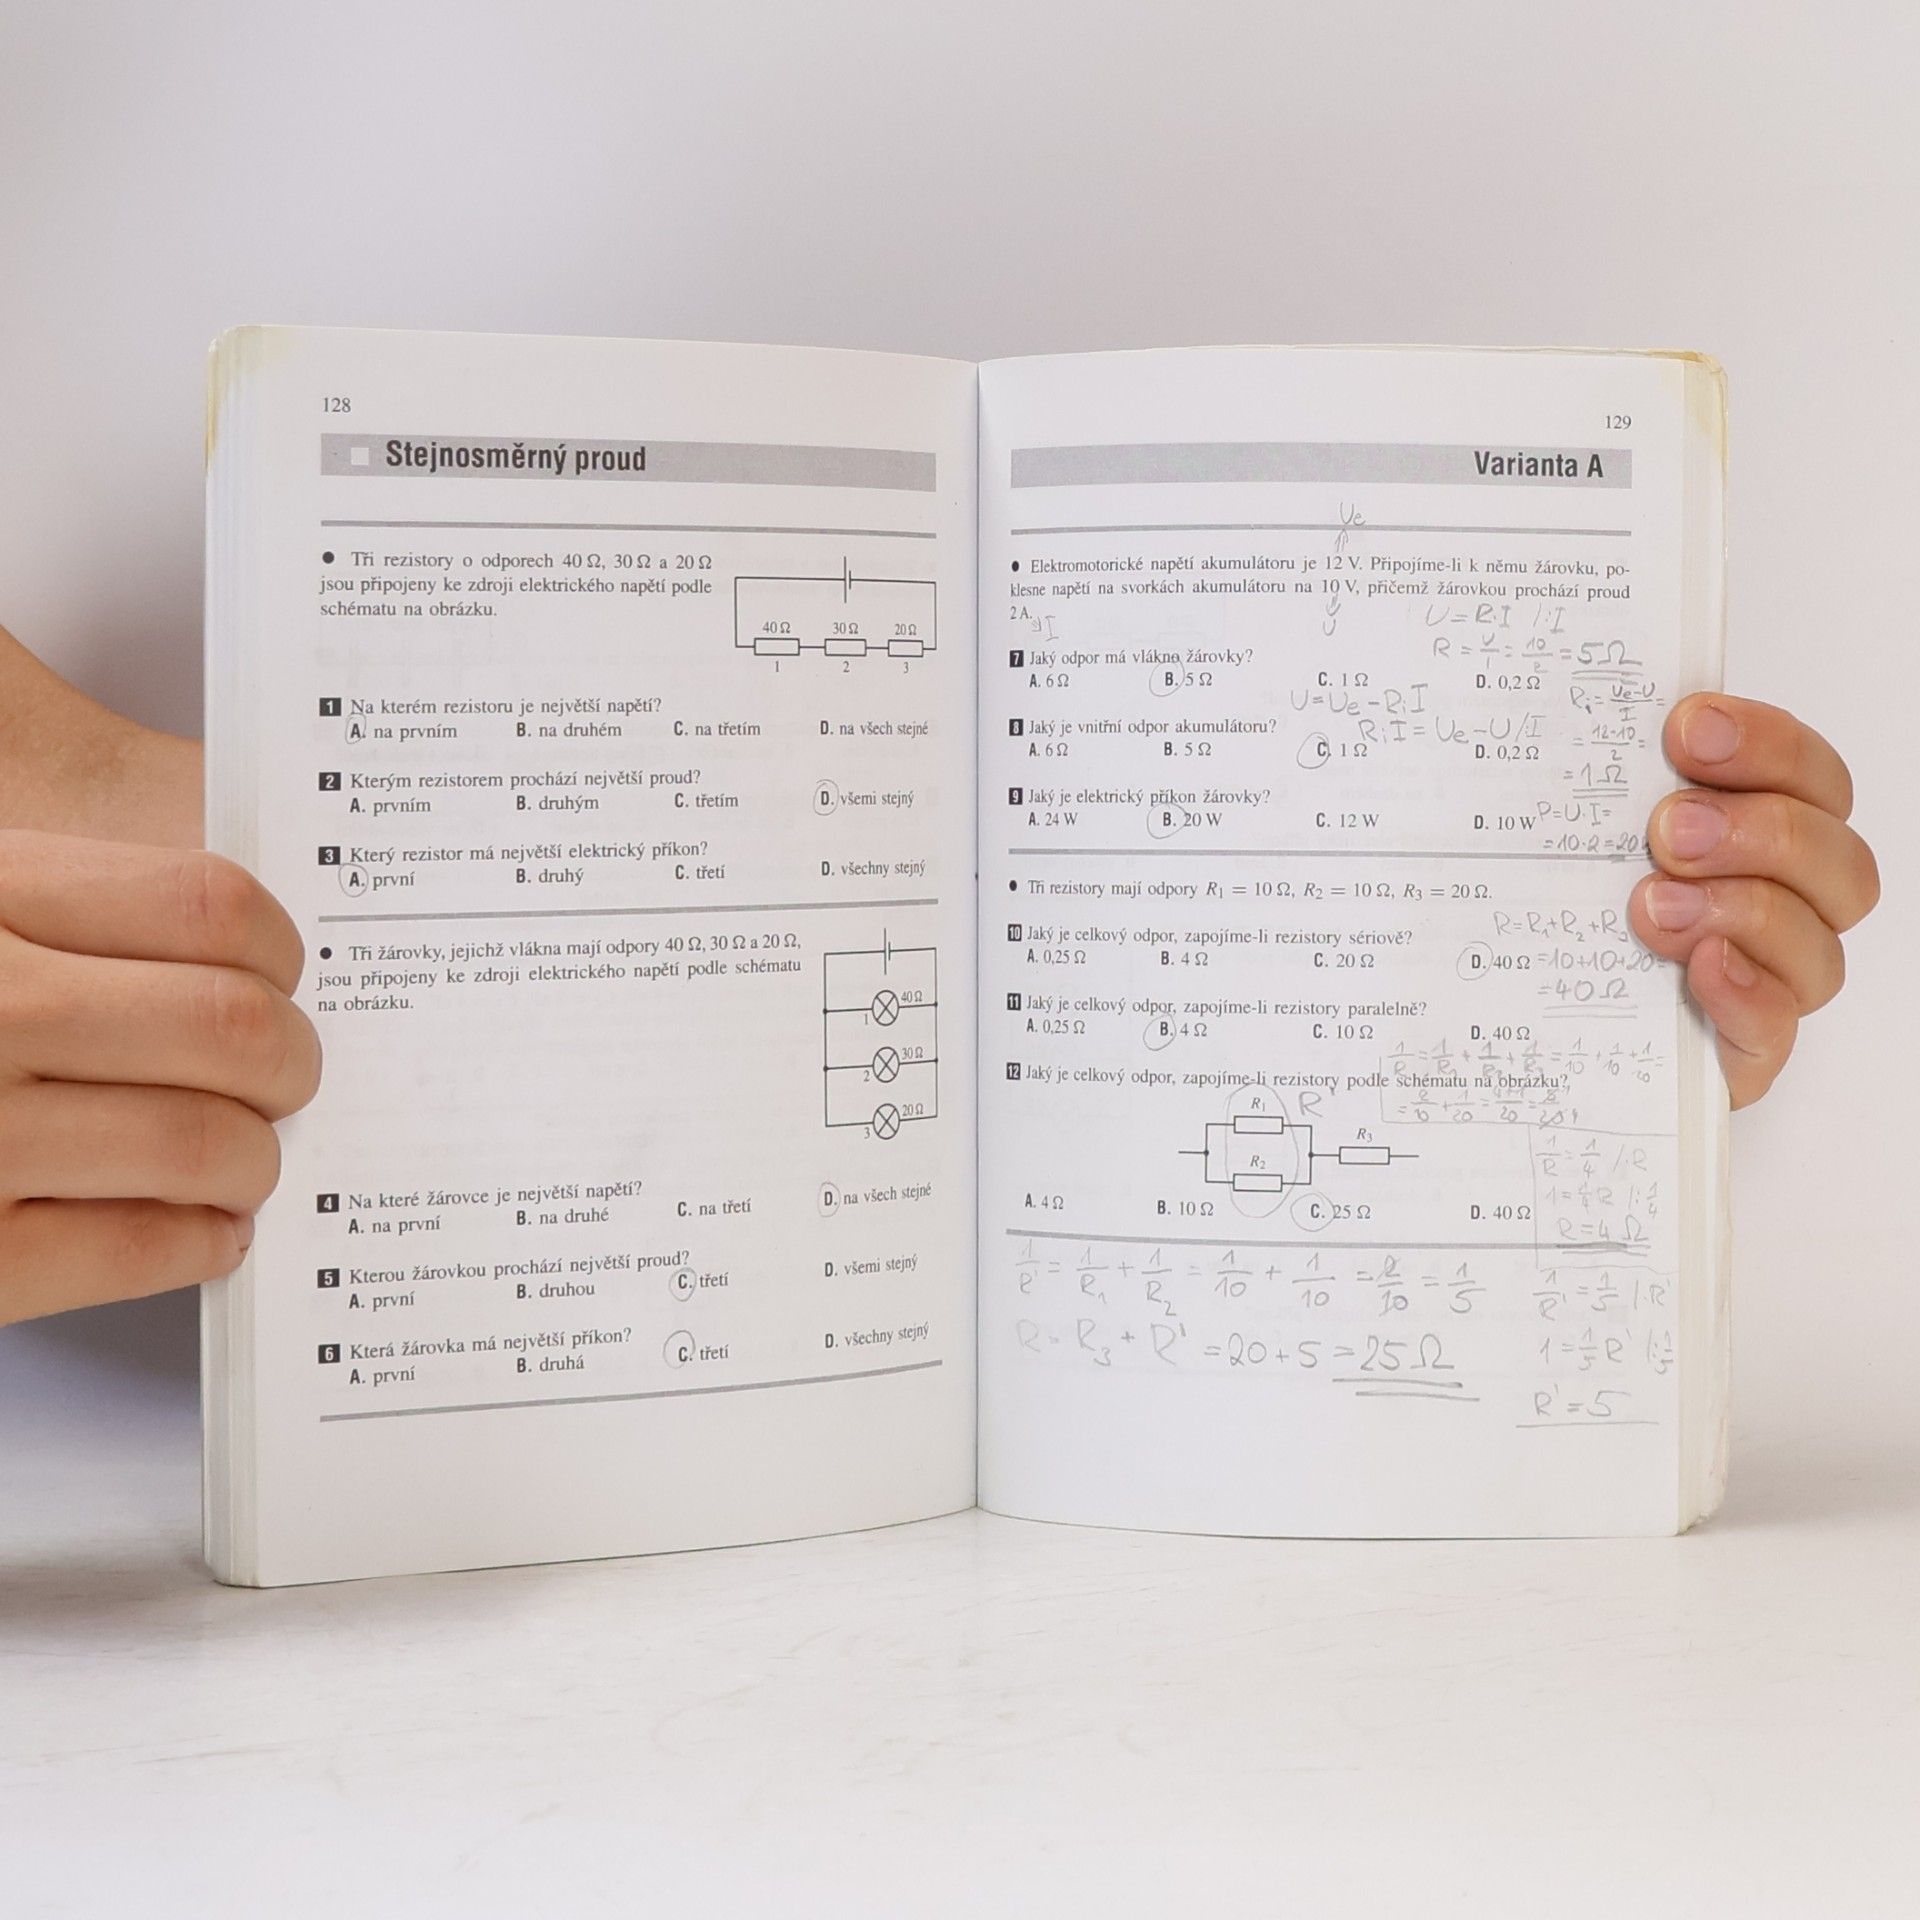 128
Stejnosměrný proud
● Tři rezistory o odporech 40 Ω, 30 Ω a 20 Ω
jsou připojeny ke zdroji elektrického napětí podle
schématu na obrázku.
40 Ω 30 Ω 20 Ω
1 2 3
1 Na kterém rezistoru je největší napětí?
A. na prvním B. na druhém C. na třetím D. na všech stejné
2 Kterým rezistorem prochází největší proud?
A. prvním B. druhým C. třetím D. všemi stejný
3 Který rezistor má největší elektrický příkon?
A. první B. druhý C. třetí D. všechny stejný
● Tři žárovky, jejichž vlákna mají odpory 40 Ω, 30 Ω a 20 Ω,
jsou připojeny ke zdroji elektrického napětí podle schématu
na obrázku.
40 Ω
1
30 Ω
2
20 Ω
3
4 Na které žárovce je největší napětí?
A. na první B. na druhé C. na třetí D. na všech stejné
5 Kterou žárovkou prochází největší proud?
A. první B. druhou C. třetí D. všemi stejný
6 Která žárovka má největší příkon?
A. první B. druhá C. třetí D. všechny stejný
129
Varianta A
Ue
● Elektromotorické napětí akumulátoru je 12 V. Připojíme-li k němu žárovku, po-
klesne napětí na svorkách akumulátoru na 10 V, přičemž žárovkou prochází proud
2 A.
I
U
U = R·I /:I
7 Jaký odpor má vlákno žárovky?
R = U/I = 10/2 = 5Ω
A. 6 Ω B. 5 Ω C. 1 Ω D. 0,2 Ω
U = Ue - RiI
Ri = Ue-U/I =
8 Jaký je vnitřní odpor akumulátoru?
RiI = Ue - U /:I
= 12-10/2 =
A. 6 Ω B. 5 Ω C. 1 Ω D. 0,2 Ω
= 1Ω
9 Jaký je elektrický příkon žárovky?
A. 24 W B. 20 W C. 12 W D. 10 W
P = U·I =
= 10·2 = 20
● Tři rezistory mají odpory R1 = 10 Ω, R2 = 10 Ω, R3 = 20 Ω.
R = R1 + R2 + R3
10 Jaký je celkový odpor, zapojíme-li rezistory sériově?
A. 0,25 Ω B. 4 Ω C. 20 Ω D. 40 Ω
= 10+10+20 =
= 40 Ω
11 Jaký je celkový odpor, zapojíme-li rezistory paralelně?
A. 0,25 Ω B. 4 Ω C. 10 Ω D. 40 Ω
1/R = 1/R1 + 1/R2 + 1/R3 = 1/10 + 1/10 + 1/20 =
12 Jaký je celkový odpor, zapojíme-li rezistory podle schématu na obrázku?
= 2/10 + 1/20 = 4+1/20 = 5/20
R1 R'
R3
R2
1/R = 1/4 /·R
1 = 1/4 R /:1/4
R = 4 Ω
A. 4 Ω B. 10 Ω C. 25 Ω D. 40 Ω
1/R' = 1/R1 + 1/R2 = 1/10 + 1/10 = 2/10 = 1/5
1/R' = 1/5 /·R'
R = R3 + R' = 20 + 5 = 25 Ω
1 = 1/5 R' /:1/5
R' = 5